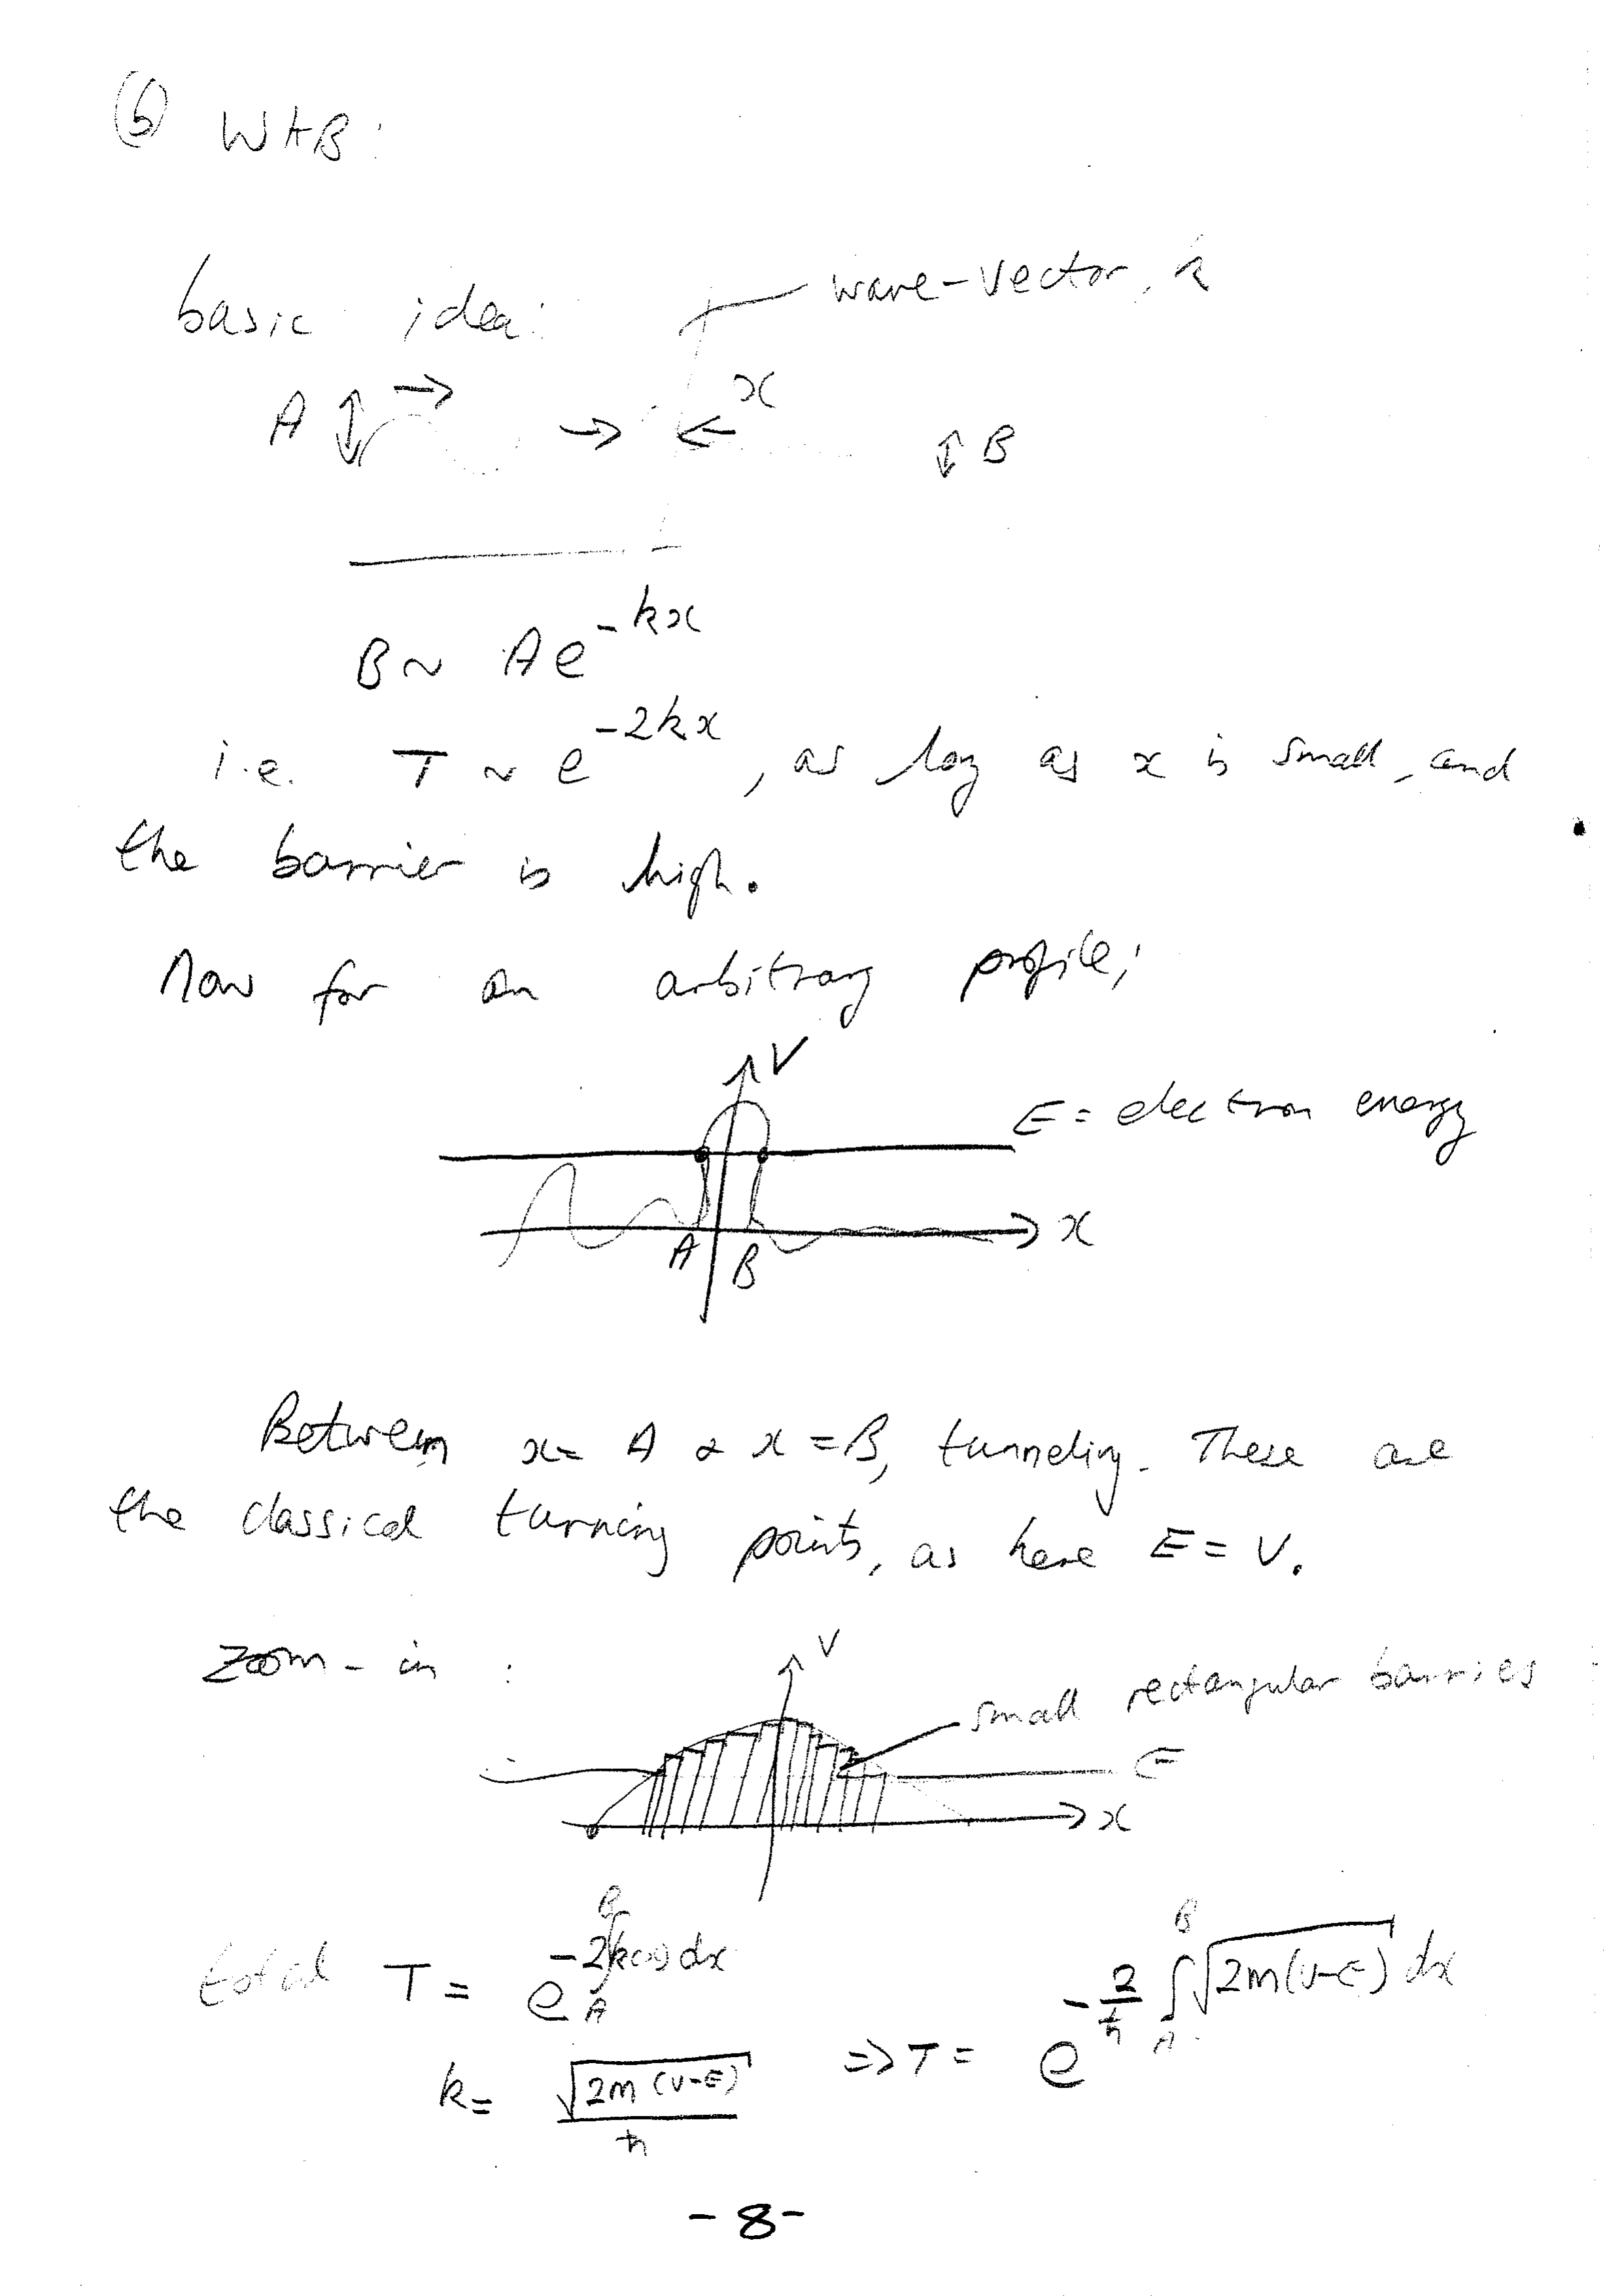 (b) WKB:
basic idea:
wave-vector, k
A
x
B
B ~ A e^{-kx}
i.e. T ~ e^{-2kx}, as long as x is small, and
the barrier is high.
Now for an arbitrary profile;
V
E = electron energy
x
A B
Between x = A & x = B, tunneling. These are
the classical turning points, as here E = V.
Zoom-in :
V
small rectangular barries
E
x
total T = e^{-2∫_A^B k(x) dx}
k = √(2m(V-E)) / ħ ⇒ T = e^{-2/ħ ∫_A^B √(2m(V-E)) dx}
- 8 -